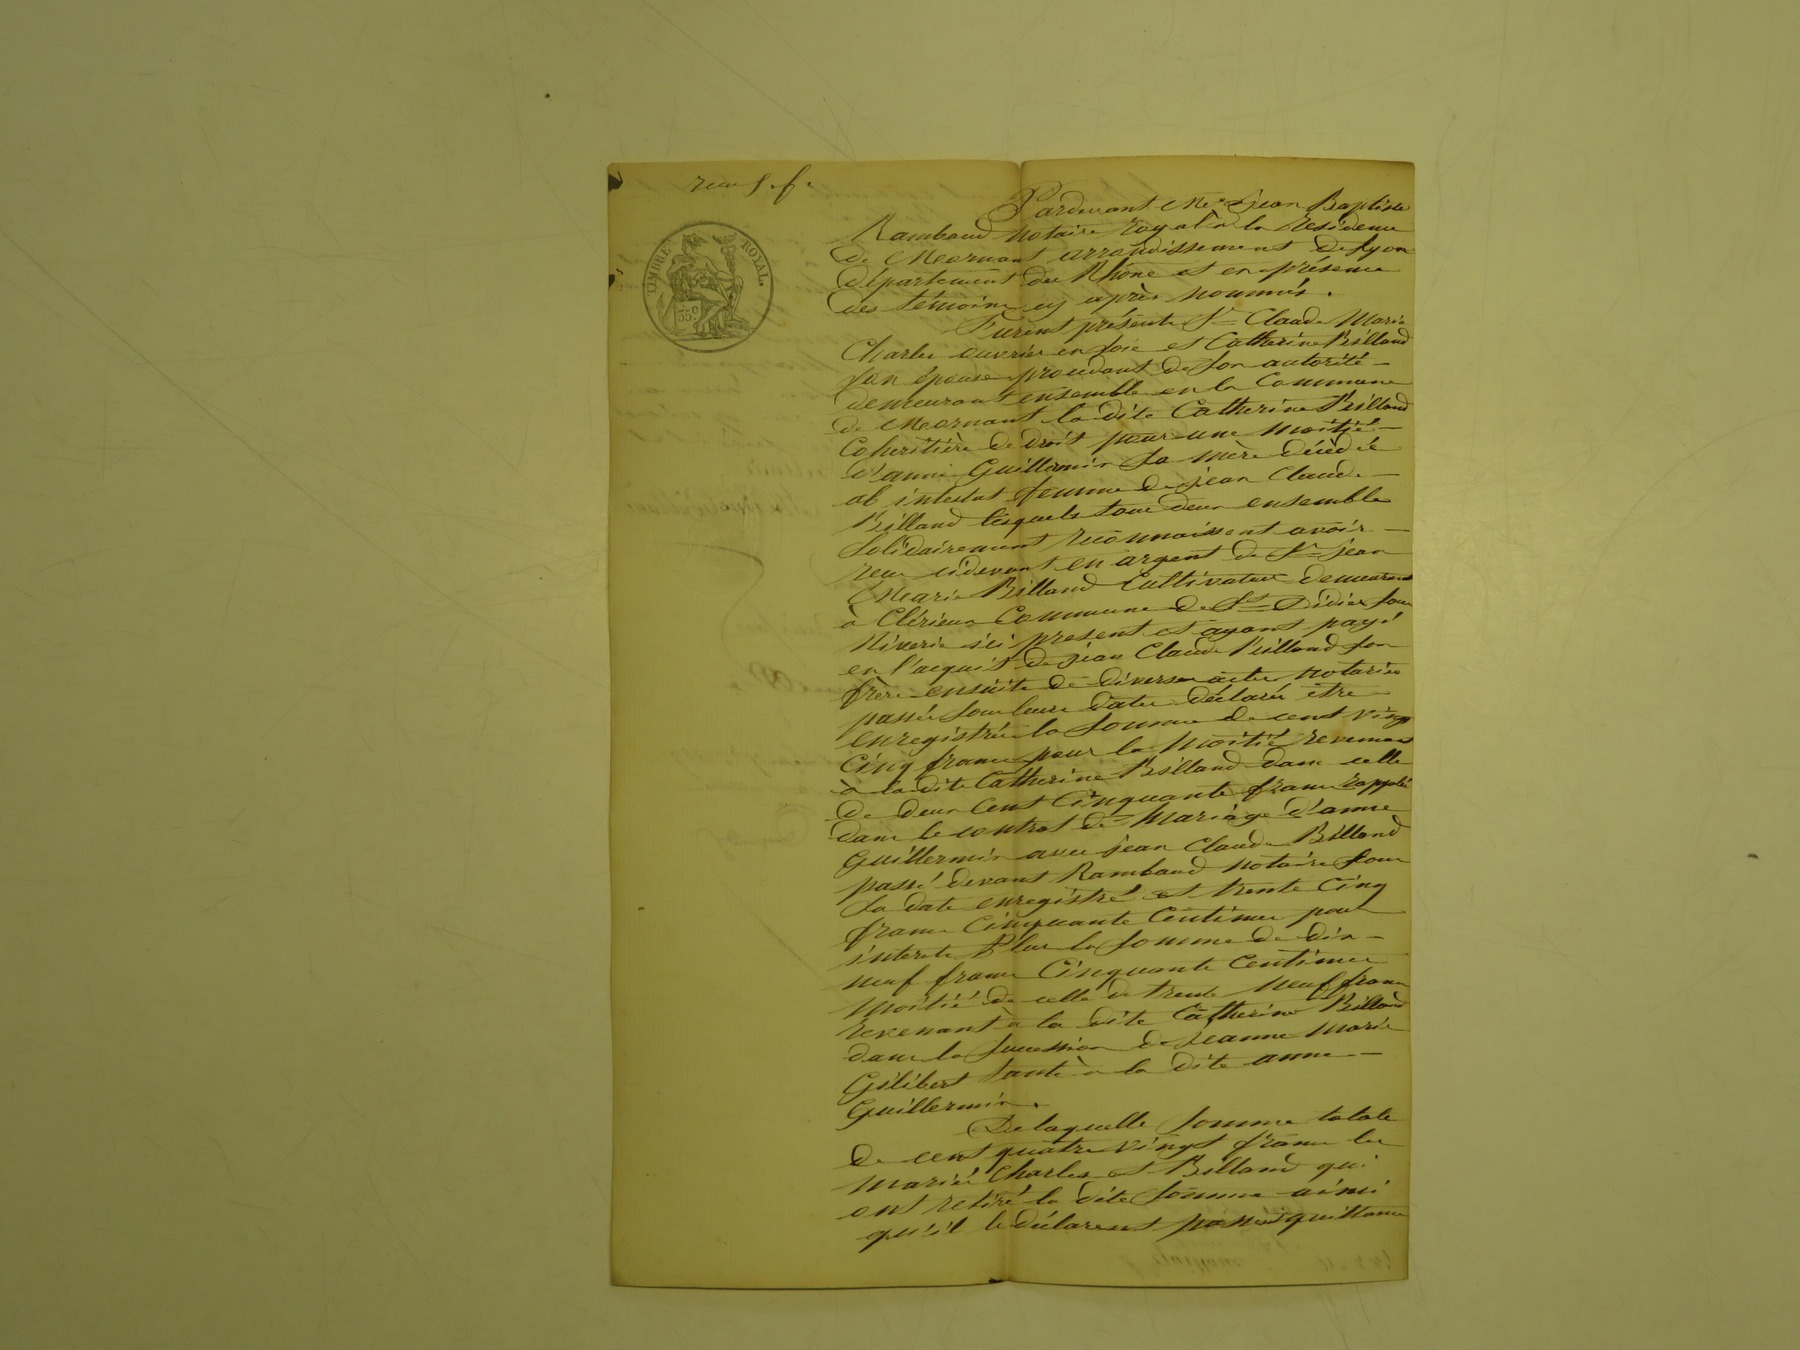 TIMBRE ROYAL.
35c
Pardevant Me Jean Baptiste
Rambaud notaire royal à la résidence
de Mornant arrondissement de Lyon
département du Rhône et en présence
des témoins cy après nommés.
Furent présents Sr Claude Marie
Charles ouvrier en soie et Catherine Billand
son épouse procédant de son autorité
demeurant ensemble en la Commune
de Mornant la dite Catherine Billand
Cohéritière de droit pour une moitié
d'anne Guillermin sa mère décédée
ab intestat femme de jean Claude
Billand lesquels tous deux ensemble
solidairement reconnaissent avoir
reçu cidevant en argent de Sr jean
Marie Billand Cultivateur demeurant
à Clérieux Commune de St Didier sous
Riverie ici présent et ayant payé
en l'acquit de jean Claude Billand son
frère ensuite de divers actes notariés
passés sous leurs dates déclarés être
enregistrés la somme de cent vingt
Cinq francs pour la moitié revenant
à la dite Catherine Billand dans celle
de deux Cent Cinquante francs rappelée
dans le contrat de mariage d'anne
Guillermin avec jean Claude Billand
passé devant Rambaud notaire sous
sa date enregistré et trente Cinq
francs Cinquante Centimes pour
interets Plus la somme de dix
neuf francs Cinquante Centimes
moitié de celle de trente neuf francs
revenant à la dite Catherine Billand
dans la succession de jeanne Marie
Gilibert tante à la dite anne
Guillermin.
De laquelle somme totale
de cent quatre vingt francs les
mariés Charles et Billand qui
ont retiré la dite somme ainsi
qu'il le déclarent passent quittance